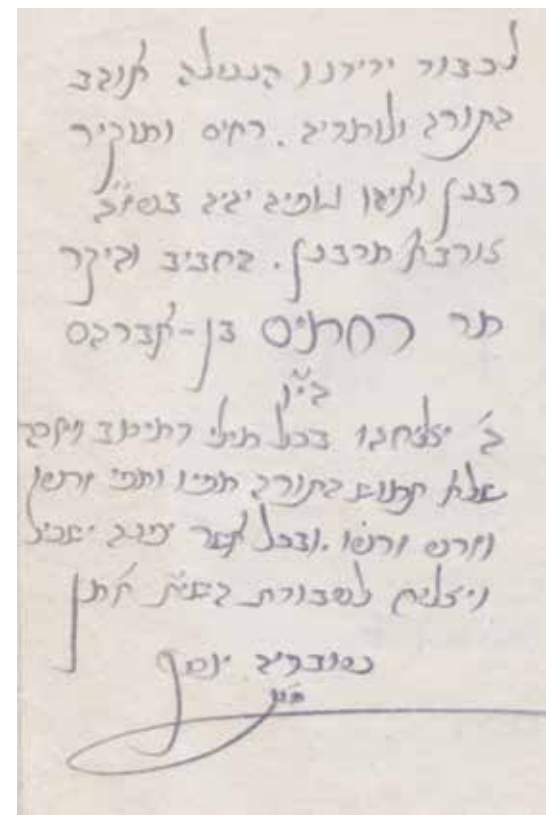 לכבוד ידידנו הנעלה אוהב
התורה ולומדיה. רחים ומוקיר
רבנן ואיהו גופיה יהיה בעז"ה
צורבא מרבנן. החביב והיקר
מר רחמים בן-אברהם
הי"ו
ה' יצליחהו בכל מילי דמיטב ויזכה
שלא תמוש התורה מפיו ומפי זרעו
וזרע זרעו. ובכל אשר יפנה ישכיל
ויצליח לעבודת השי"ת אמן
עובדיה יוסף
ס"ט